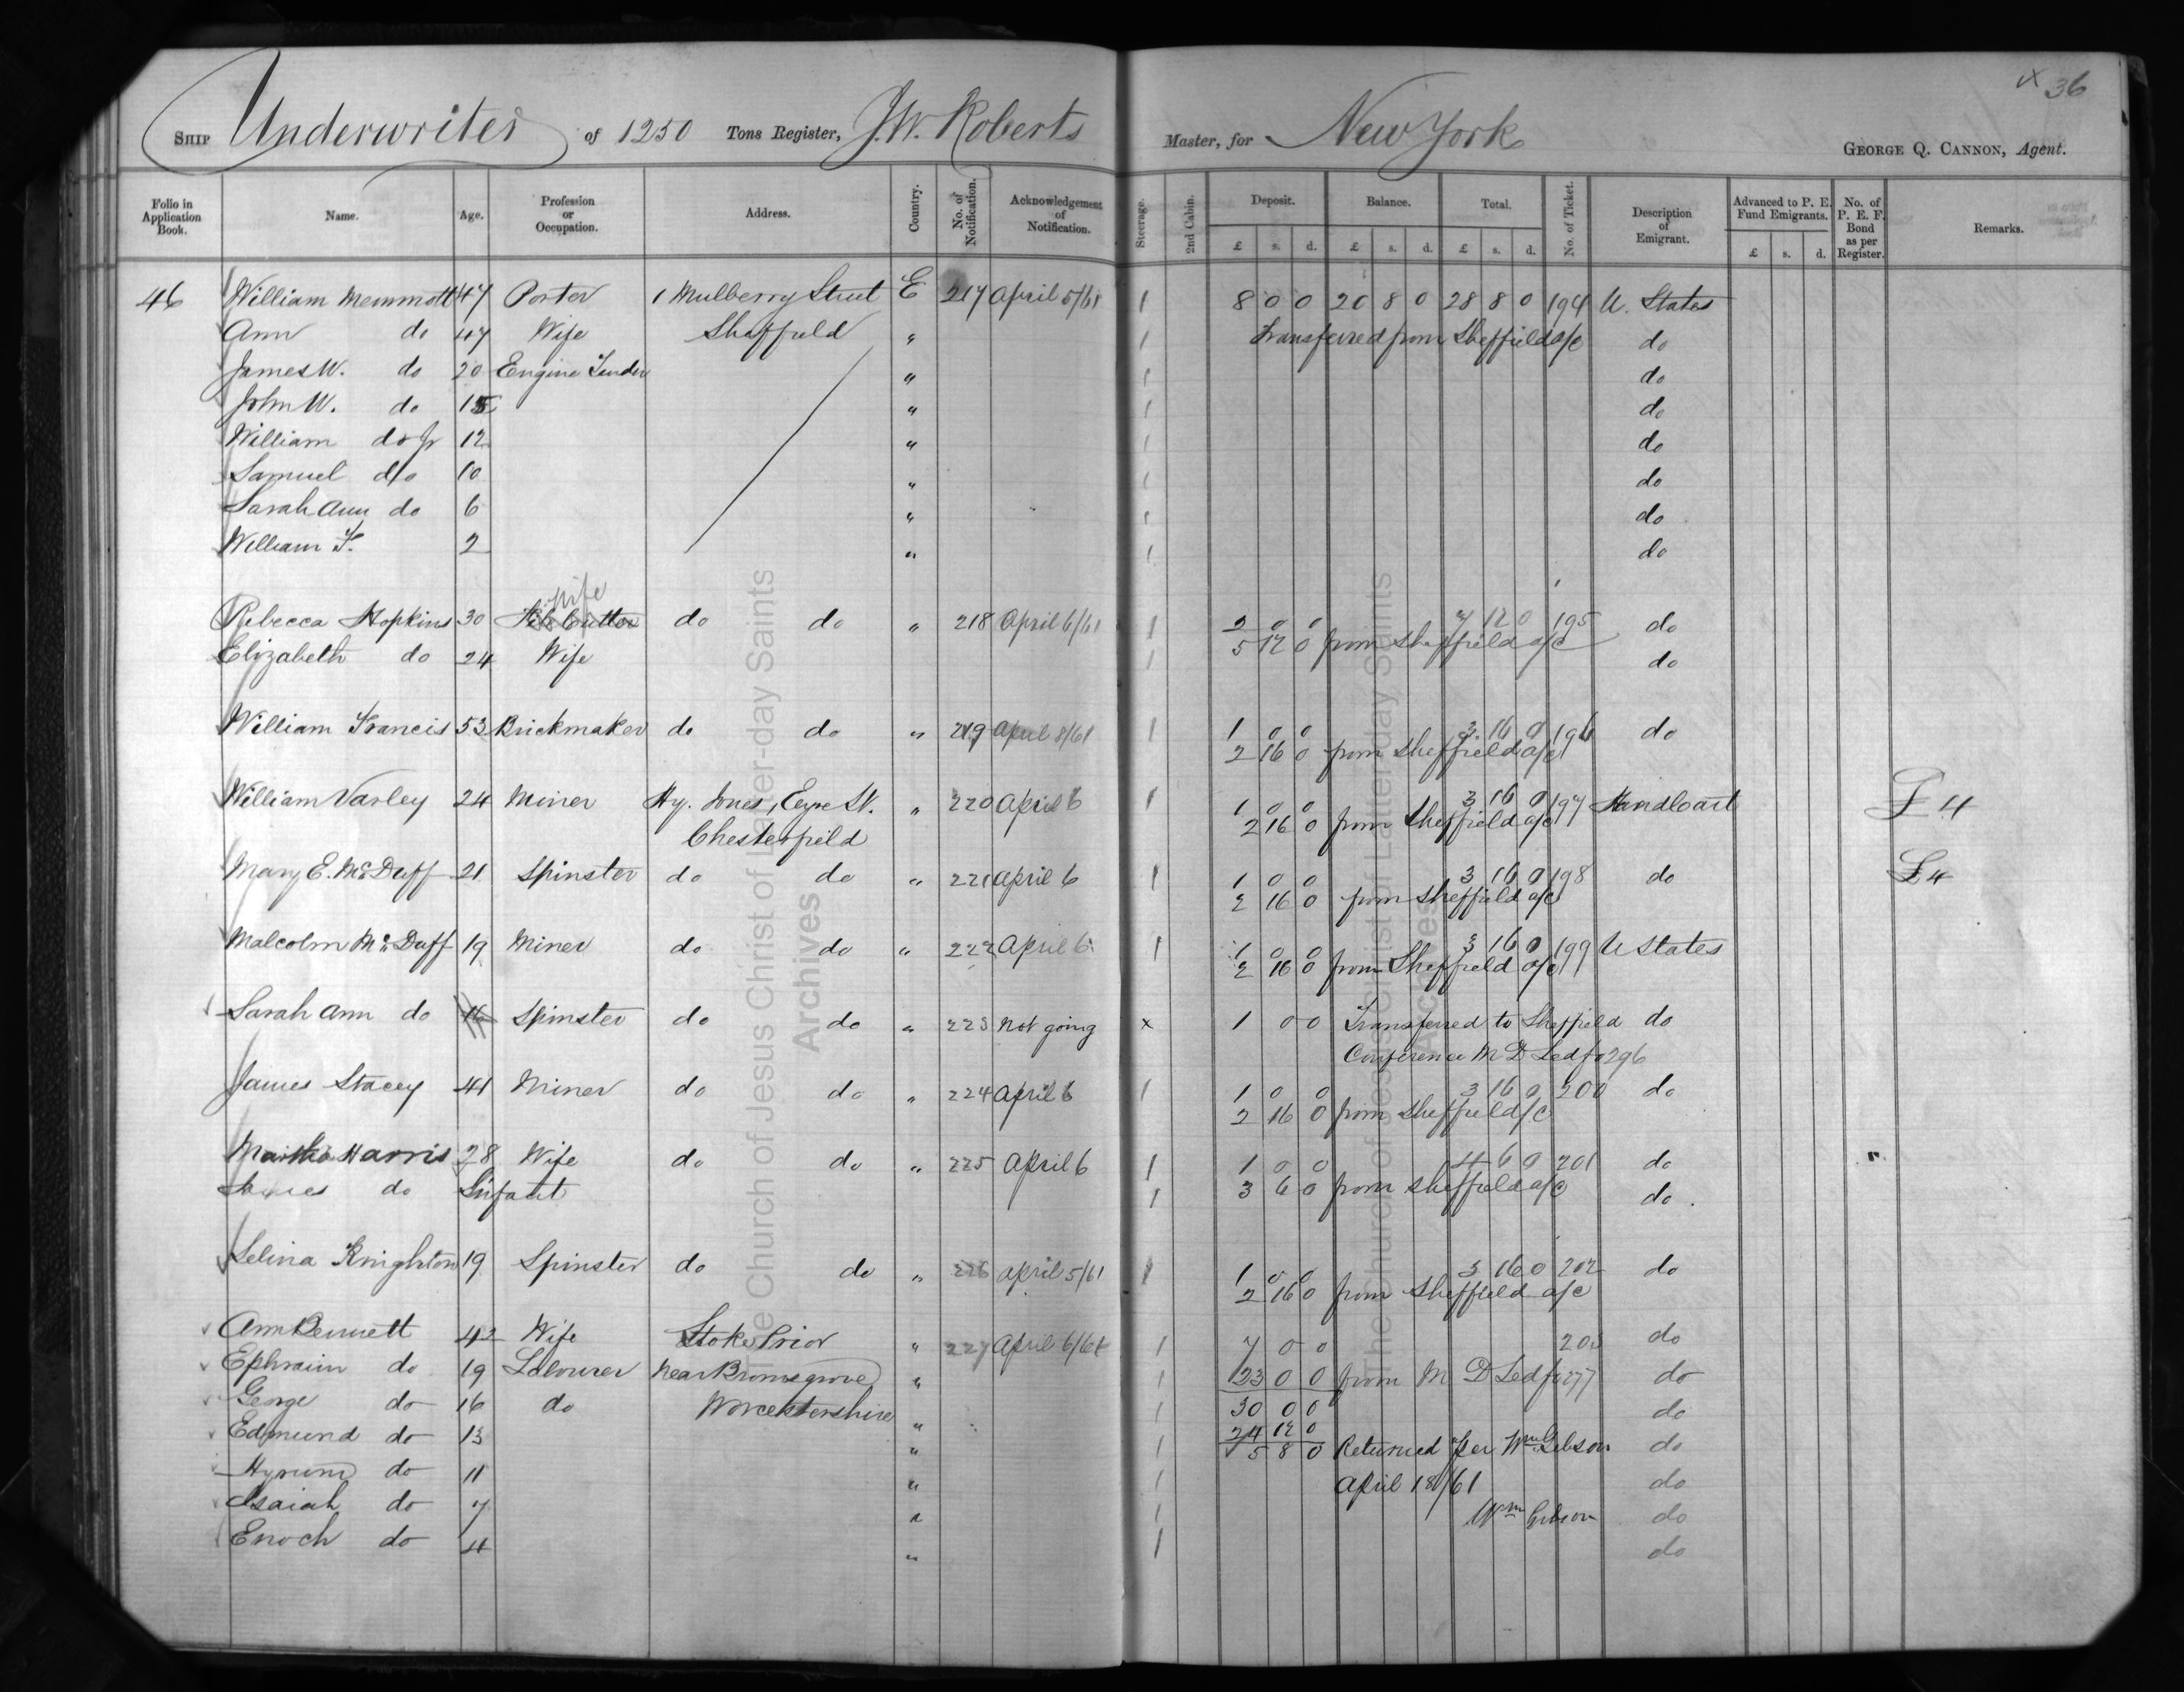 36
SHIP Underwriter of 1250 Tons Register, J.W. Roberts Master, for New York GEORGE Q. CANNON, Agent.
Folio in Application Book. Name. Age. Profession or Occupation. Address. Country. No. of Notification. Acknowledgement of Notification. Steerage. 2nd Cabin. Deposit. Balance. Total. No. of Ticket. Description of Emigrant. Advanced to P. E. Fund Emigrants. No. of P. E. F. Bond as per Register. Remarks.
£ s. d. £ s. d. £ s. d. £ s. d.
46 William Memmott 47 Porter 1 Mulberry Street E 217 April 5/61 1 8 0 0 20 8 0 28 8 0 194 U. States
Ann do 47 Wife Sheffield " 1 Transferred from Sheffield a/c do
James W. do 20 Engine Tender " 1 do
John W. do 15 " 1 do
William do Jr 12 " 1 do
Samuel do 10 " 1 do
Sarah Ann do 6 " 1 do
William F. 2 " 1 do
wife
Rebecca Hopkins 30 File Cutter do do " 218 April 6/61 1 2 0 0 7 12 0 195 do
5 12 0 from Sheffield a/c
Elizabeth do 24 Wife 1 do
William Francis 53 Brickmaker do do " 219 April 8/61 1 1 0 0 3 16 0 196 do
2 16 0 from Sheffield a/c
William Varley 24 Miner Hy. Jones, Eyre St. " 220 April 6 1 1 0 0 3 16 0 197 Handcart £4
Chesterfield 2 16 0 from Sheffield a/c
Mary E. McDuff 21 Spinster do do " 221 April 6 1 1 0 0 3 16 0 198 do £4
2 16 0 from Sheffield a/c
Malcolm McDuff 19 Miner do do " 222 April 6 1 1 0 0 3 16 0 199 U States
2 16 0 from Sheffield a/c
Sarah Ann do 16 Spinster do do " 223 Not going x 1 0 0 Transferred to Sheffield do
Conference M D Led fo 296
James Stacey 41 Miner do do " 224 April 6 1 1 0 0 3 16 0 200 do
2 16 0 from Sheffield a/c
Martha Harris 28 Wife do do " 225 April 6 1 1 0 0 4 6 0 201 do
James do Infant 1 3 6 0 from Sheffield a/c do
Selina Knighton 19 Spinster do do " 226 April 5/61 1 1 0 0 3 16 0 202 do
2 16 0 from Sheffield a/c
Ann Bennett 42 Wife Stoke Prior " 227 April 6/61 1 7 0 0 203 do
Ephraim do 19 Labourer Near Bromsgrove " 1 23 0 0 from M D Led fo 277 do
George do 16 do Worcestershire " 1 30 0 0 do
24 12 0
Edmund do 13 " 1 5 8 0 Returned per Wm Gibson do
Hyrum do 11 " 1 April 18/61 do
Isaiah do 7 " 1 Wm Gibson do
Enoch do 4 " 1 do
The Church of Jesus Christ of Latter-day Saints
Archives
The Church of Jesus Christ of Latter-day Saints
Archives